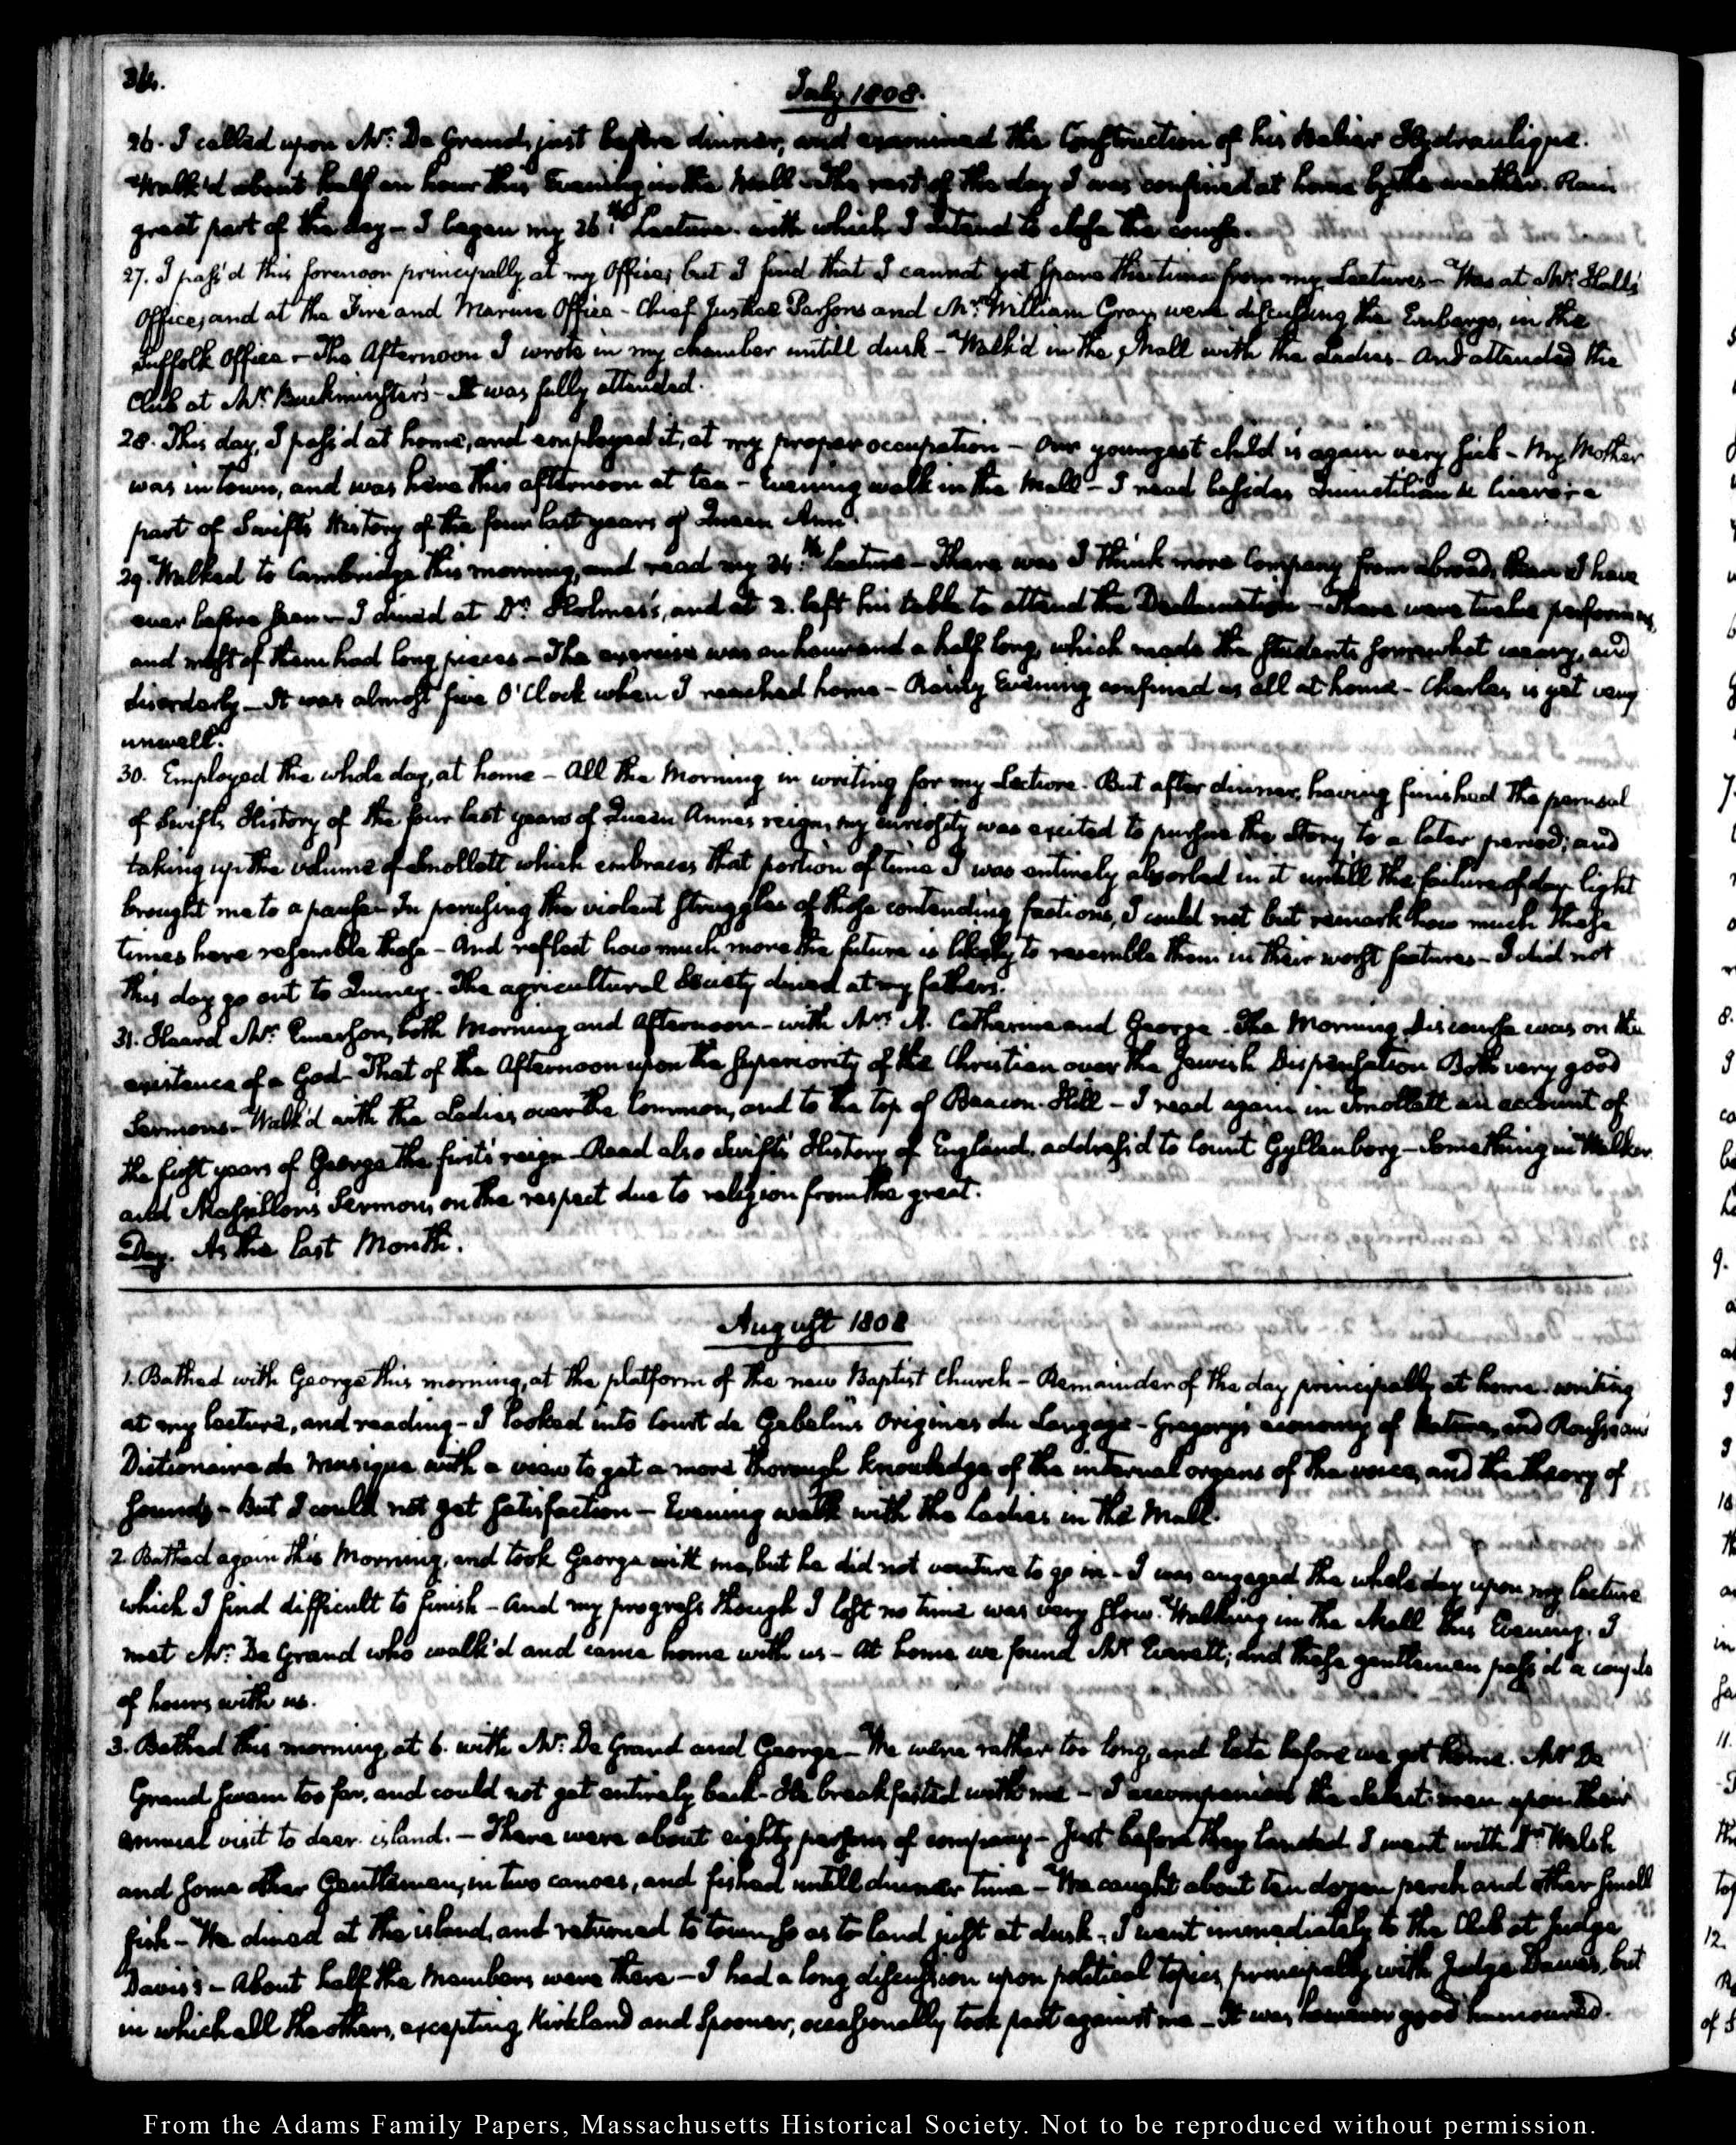 34.
July 1808.
26. I called upon Mr. De Grand, just before dinner, and examined the Construction of his Belier Hydraulique.
Walk'd about half an hour this Evening in the Mall. The rest of the day I was confined at home by the weather. Rain
great part of the day — I began my 26th. Lecture. with which I intend to close the course.
27. I pass'd this forenoon principally at my Office; but I find that I cannot yet spare the time from my Lectures — Was at Mr. Hall's
Office, and at the Fire and Marine Office — Chief Justice Parsons and Mr. William Gray, were discussing the Embargo, in the
Suffolk Office — The Afternoon I wrote in my chamber untill dusk — Walk'd in the Mall with the Ladies — And attended the
Club at Mr. Buckminster's — It was fully attended.
28. This day, I pass'd at home, and employed it, at my proper occupation — Our youngest child is again very sick — My Mother
was in town, and was here this afternoon at tea — Evening walk in the Mall — I read besides Quinctilian & Cicero; a
part of Swift's History of the four last years of Queen Ann.
29. Walked to Cambridge this morning, and read my 24th. Lecture — There was I think more Company from abroad, than I have
ever before seen — I dined at Dr. Holmes's, and at 2. left his table to attend the Declamation — There were twelve performers,
and most of them had long pieces — The exercise was an hour and a half long, which made the students somewhat weary, and
disorderly — It was almost five O'Clock when I reached home — Rainy Evening confined us all at home — Charles, is yet very
unwell.
30. Employed the whole day, at home — All the Morning in writing for my Lecture. But after dinner, having finished the perusal
of Swift's History of the four last years of Queen Anne's reign, my curiosity was excited to pursue the Story, to a later period; and
taking up the volume of Smollett which embraces that portion of time I was entirely absorbed in it untill the failure of day-light
brought me to a pause — In perusing the violent struggles of those contending factions, I could not but remark how much these
times have resemble those — And reflect how much more the future is likely to resemble them in their worst features — I did not
this day go out to Quincy — The agricultural Society dined at my father's.
31. Heard Mr. Emerson, both Morning and Afternoon — with Mrs. A. Catherine and George. The Morning discourse was on the
existence of a God — That of the Afternoon upon the superiority of the Christian over the Jewish Dispensation Both very good
Sermons — Walk'd with the Ladies over the Common, and to the top of Beacon-Hill — I read again in Smollett an account of
the first years of George the first's reign — Read also Swift's History of England, address'd to Count Gyllenborg — Something in Walker
and Massillon's Sermon, on the respect due to religion from the great.
Day. As the last Month.
August 1808
1. Bathed with George this morning, at the platform of the new Baptist Church — Remainder of the day principally at home — writing
at my lecture, and reading — I looked into Court de Gebelin's Origines du Langage — Gregory's economy of Nature, and Rousseau's
Dictionaire de Musique with a view to get a more thorough knowledge of the internal organs of the voice, and the theory of
sounds — But I could not get satisfaction — Evening walk with the Ladies in the Mall.
2. Bathed again this Morning, and took George with me, but he did not venture to go in — I was engaged the whole day upon my lecture
which I find difficult to finish — And my progress though I lost no time was very slow. Walking in the Mall this Evening. I
met Mr. De Grand who walk'd and came home with us — At home we found Mr. Everett; and these gentlemen pass'd a couple
of hours with us.
3. Bathed this morning, at 6. with Mr. De Grand and George — We were rather too long, and late before we got home. Mr. De
Grand swam too far, and could not get entirely back — He breakfasted with me — I accompanied the Select-men upon their
annual visit to deer-island. — There were about eighty persons of company — Just before they landed I went with Dr. Welsh
and some other Gentlemen, in two canoes, and fished untill dinner time — We caught about ten dozen perch and other small
fish — We dined at the island, and returned to town, so as to land just at dusk — I went immediately to the Club at Judge
Davis's — About half the Members were there — I had a long discussion upon political topics, principally with Judge Dawes, but
in which all the others, excepting Kirkland and Spooner, occasionally took part against me — It was however good humoured.
From the Adams Family Papers, Massachusetts Historical Society. Not to be reproduced without permission.